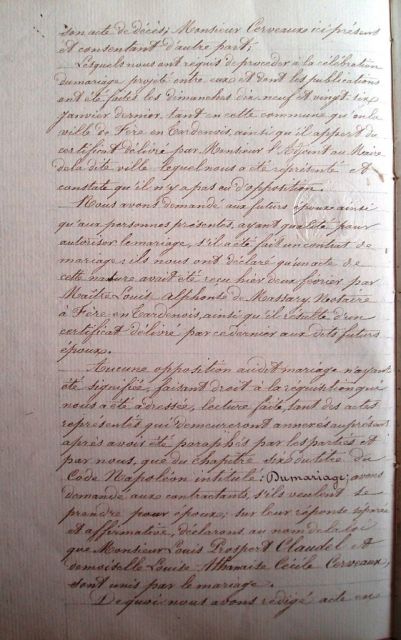 son acte de décès; Monsieur Cerveaux ici présent
et consentant d'autre part;
Lesquels nous ont requis de procéder à la célébration
du mariage projeté entre eux et dont les publications
ont été faites les dimanches dix neuf et vingt six
janvier dernier, tant en cette commune qu'en la
ville de Fère en Tardenois, ainsi qu'il appert du
certificat délivré par Monsieur l'Adjoint au Maire
de la dite ville lequel nous a été représenté et
constate qu'il n'y a pas eu d'opposition.
Nous avons demandé aux futurs époux ainsi
qu'aux personnes présentes, ayant qualité pour
autoriser le mariage, s'il a été fait un contrat de
mariage; ils nous ont déclaré qu'un acte de
cette nature avait été reçu hier deux février par
Maître Louis Alphonse de Massary Notaire
à Fère en Tardenois, ainsi qu'il résulte d'un
certificat délivré par ce dernier aux dits futurs
époux.
Aucune opposition au dit mariage n'ayant
été signifiée, faisant droit à la réquisition qui
nous a été adressée, lecture faite tant des actes
représentés qui demeureront annexés au présent
après avoir été paraphés par les parties et
par nous, que du chapitre six du titre du
Code Napoléon intitulé: Du mariage; avons
demandé aux contractants, s'ils veulent se
prendre pour époux; sur leur réponse séparée
et affirmative, déclarons au nom de la loi
que Monsieur Louis Prosper Claudel et
demoiselle Louise Athanaïse Cécile Cerveaux,
sont unis par le mariage.
De quoi nous avons rédigé acte en